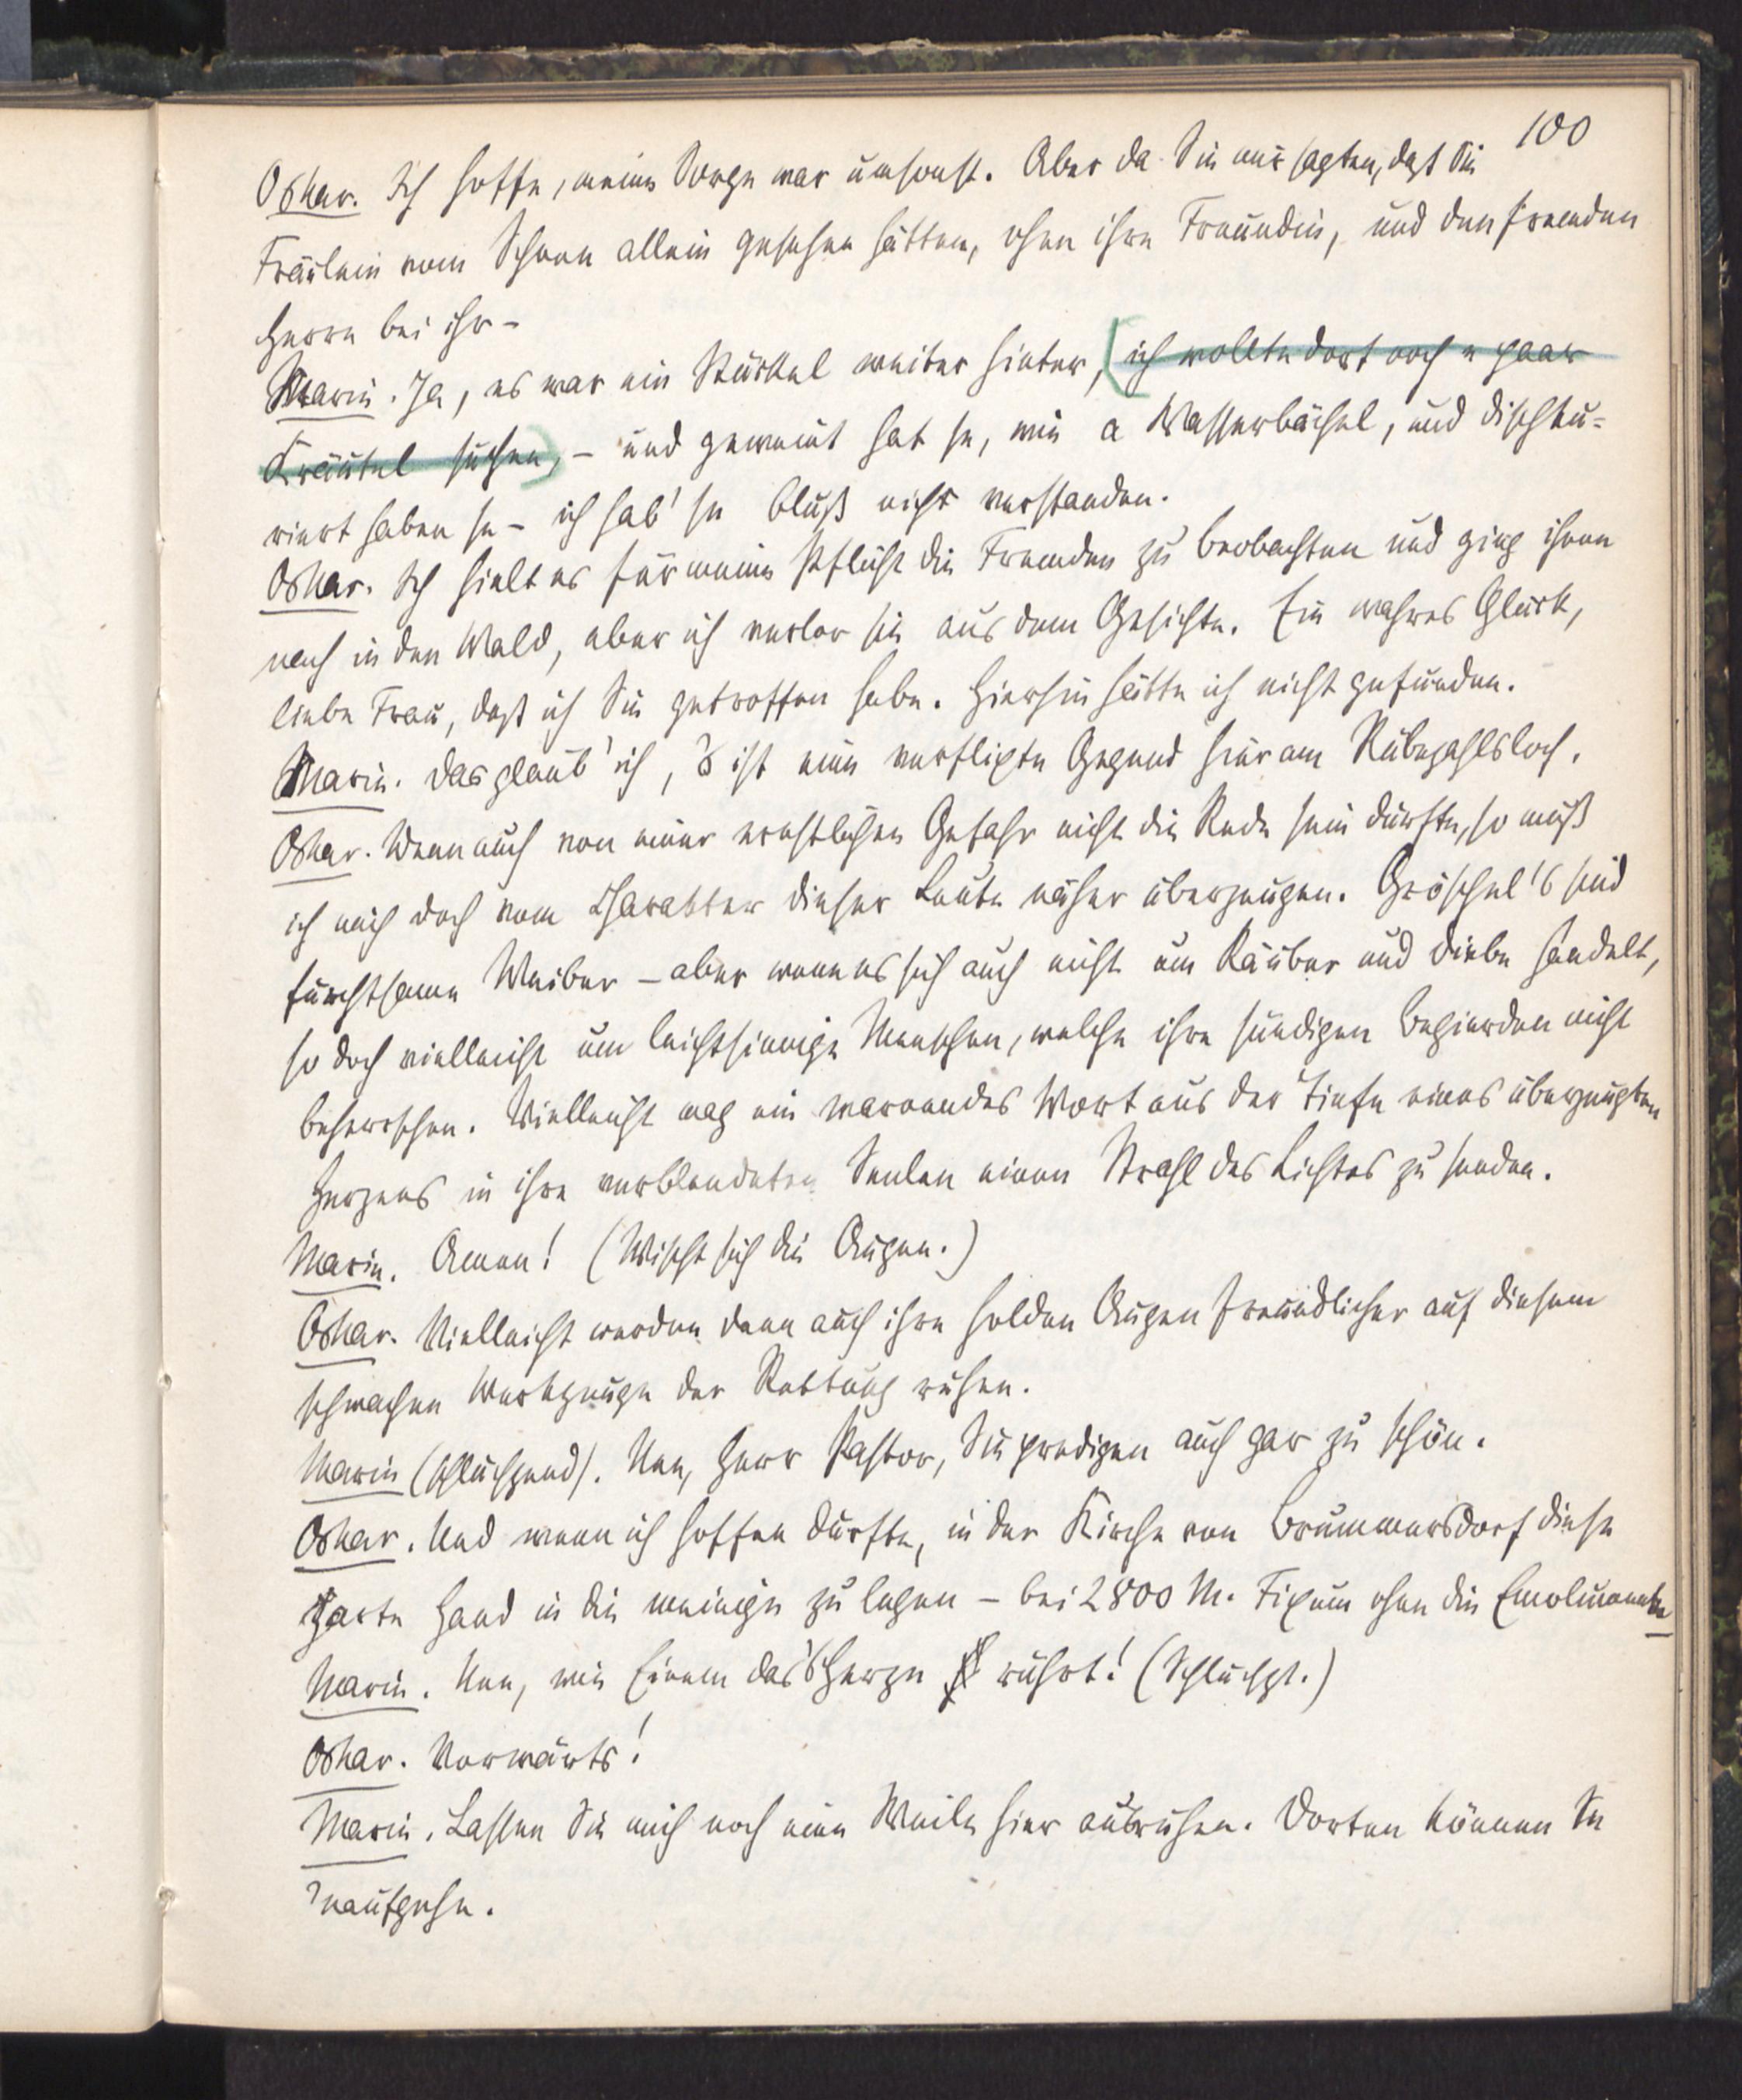 100
Oskar. Ich hoffe, meine Sorge war umsonst. Aber da Sie mir sagten, daß Sie
Fräulein vom Schoon allein gesehen hätten, ohne ihre Freundin, und den fremden
Herrn bei ihr –
Marie. Ja, es war ein Stückel weiter hinter, (ich wollte dort noch a paar
Kräutel suchen,) – und geweint hat se, wie a Wasserbächel, und dischku-
riert haben se – ich hab' se bluß nicht verstanden.
Oskar. Ich hielt es für meine Pflicht die Fremden zu beobachten und ging ihnen
nach in den Wald, aber ich verlor sie aus dem Gesichte. Ein wahres Glück,
liebe Frau, daß ich Sie getroffen habe. Hierhin hätte ich nicht gefunden.
Marie. Das glaub' ich, 's ist eine verflixte Gegend hier am Rübezahlsloch.
Oskar. Wenn auch von einer ernstlichen Gefahr nicht die Rede sein dürfte, so muß
ich mich doch vom Charakter dieser Leute näher überzeugen. Gröschel's sind
furchtsame Weiber – aber wenn es sich auch nicht um Räuber und Diebe handelt,
so doch vielleicht um leichtsinnige Menschen, welche ihre sündigen Begierden nicht
beherrschen. Vielleicht mag ein warnendes Wort aus der Tiefe eines überzeugten
Herzens in ihre verblendeten Seelen einen Strahl des Lichtes zu senden.
Marie. Amen! (Wischt sich die Augen.)
Oskar. Vielleicht werden dann auch ihre holden Augen freundlicher auf diesem
schwachen Werkzeuge der Rettung ruhen.
Marie (schluchzend). Nee, Herr Pastor, Sie predigen auch gar zu schön.
Oskar. Und wenn ich hoffen dürfte, in der Kirche von Brummersdorf diese
zarte Hand in die meinige zu legen – bei 2800 M. Fixum ohne die Emolumente
Marie. Nee, wie Einem das's Herze rührt! (Schluchzt.)
Oskar. Vorwärts!
Marie. Lassen Sie mich noch eine Weile hier ausruhen. Dorten können Se
'naufgehn.